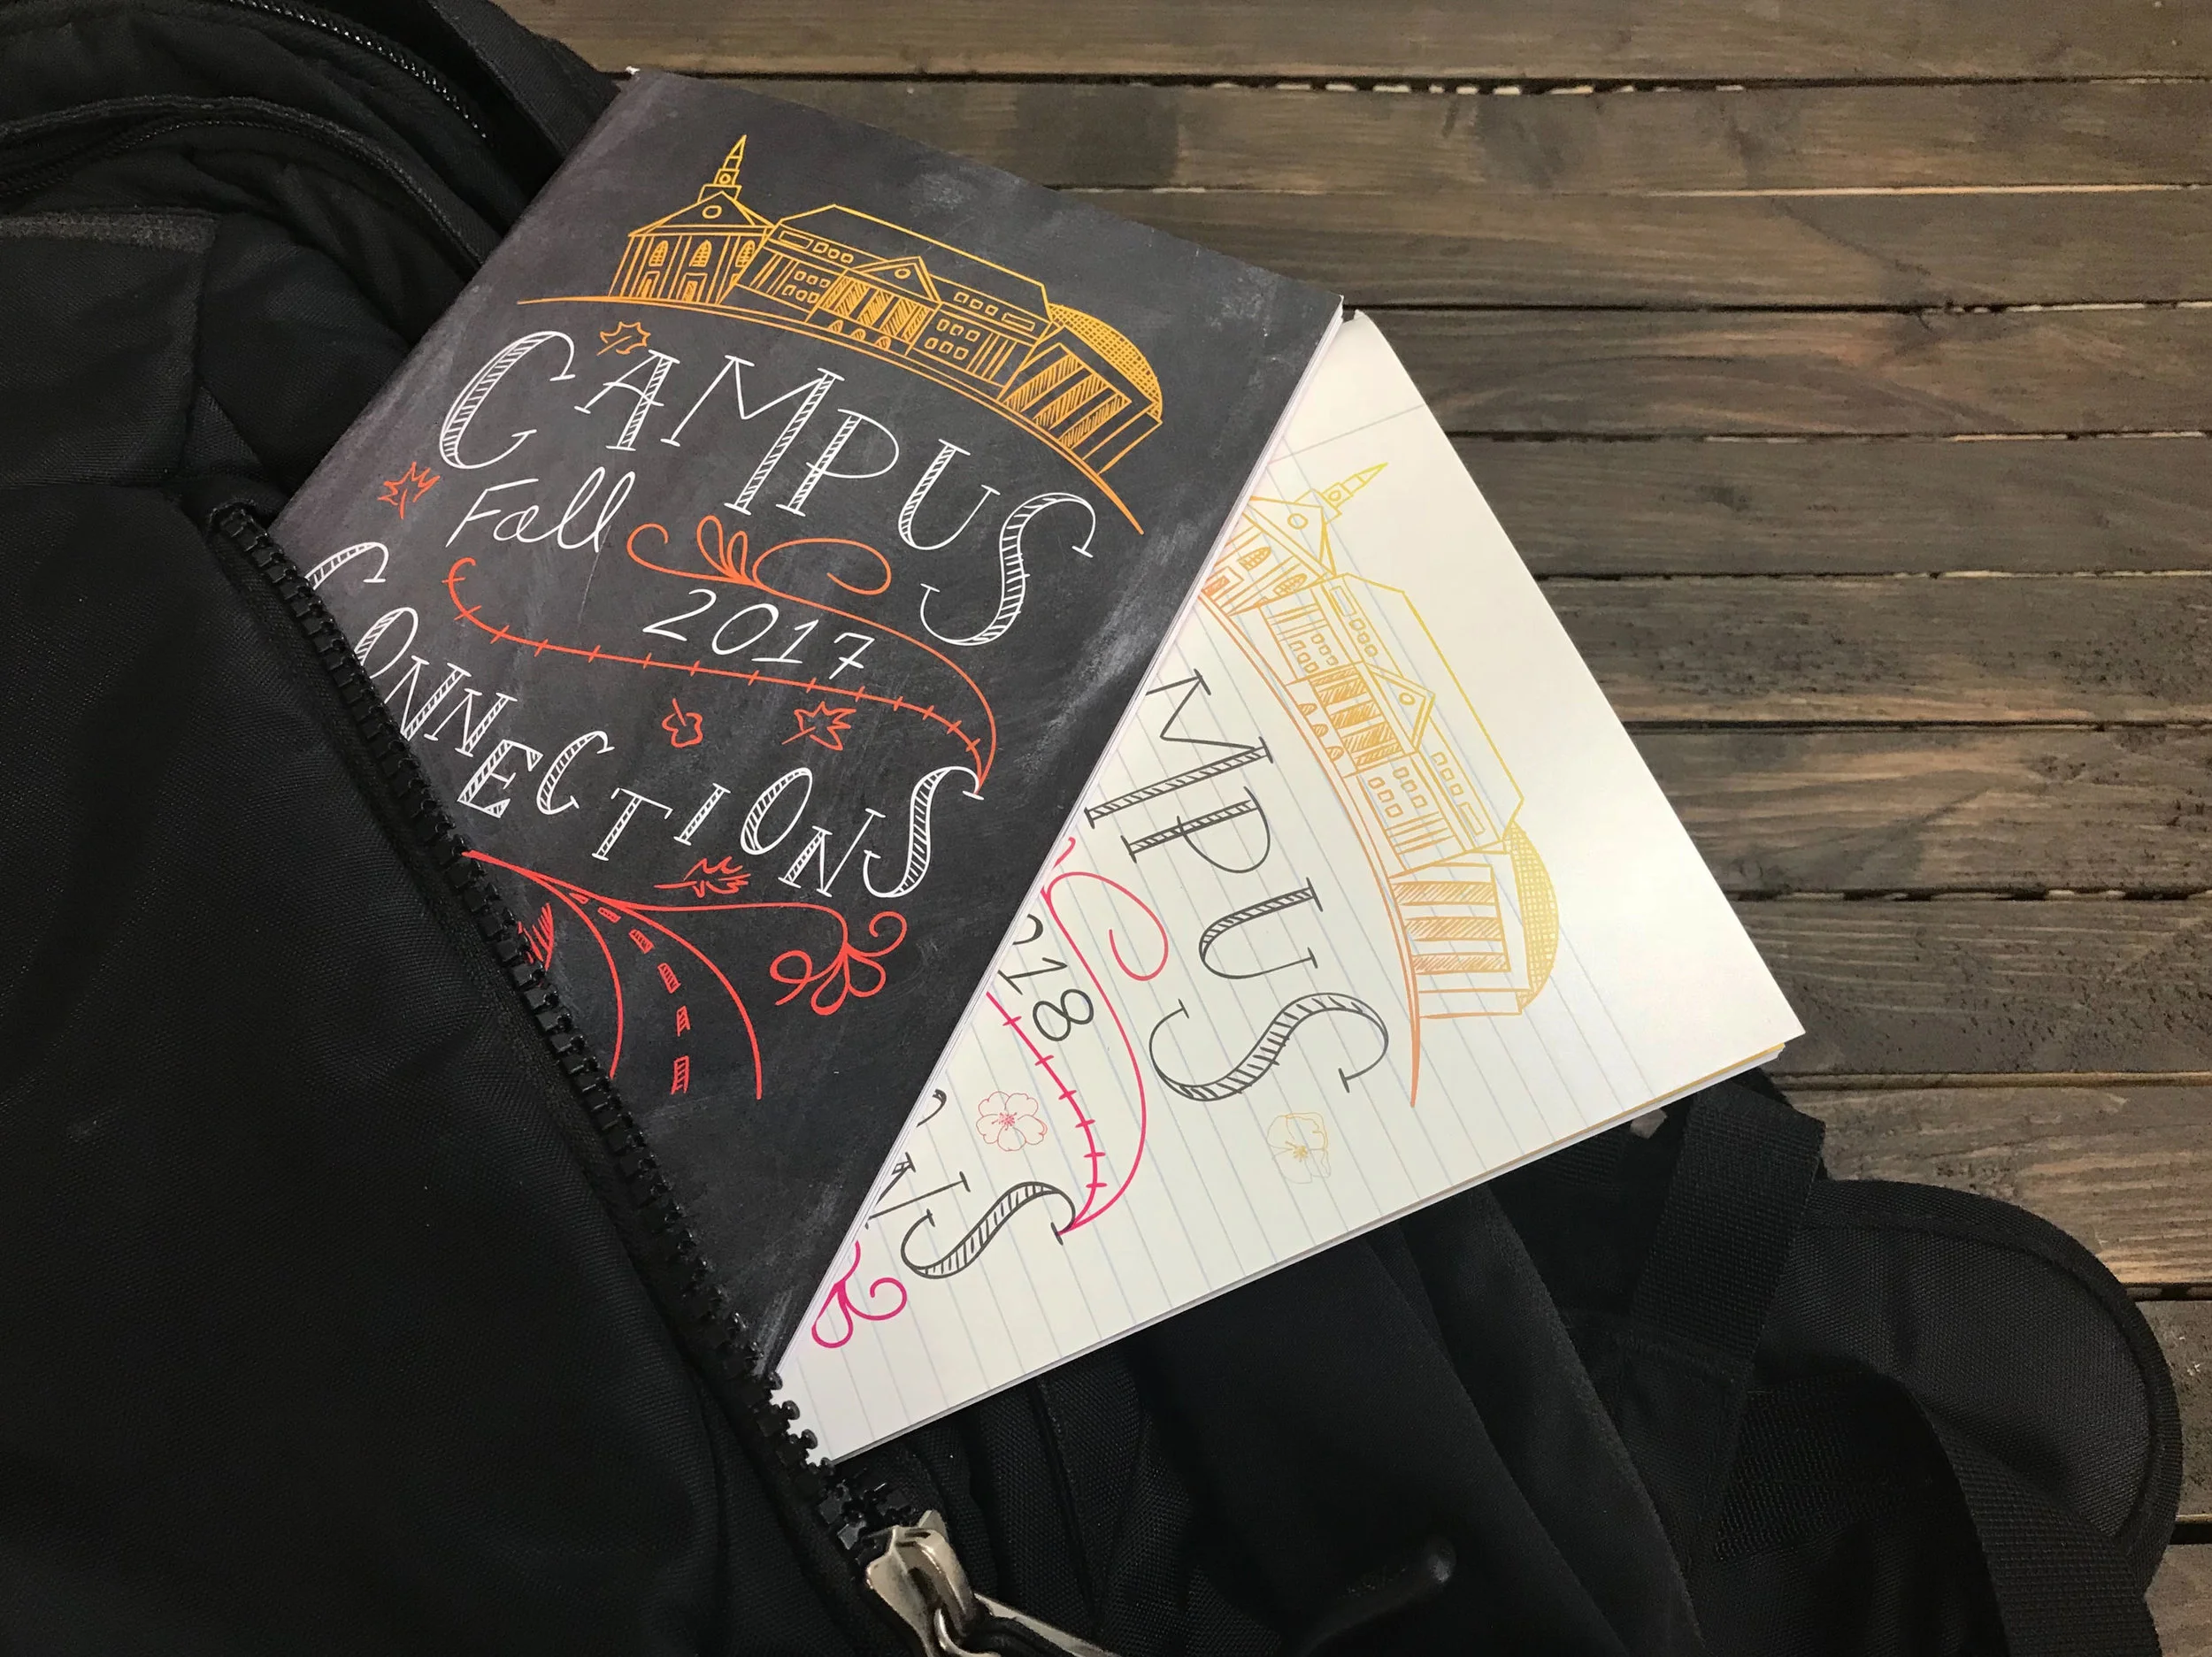 CAMPUS
Fall
2017
CONNECTIONS
MPUS
018
NS